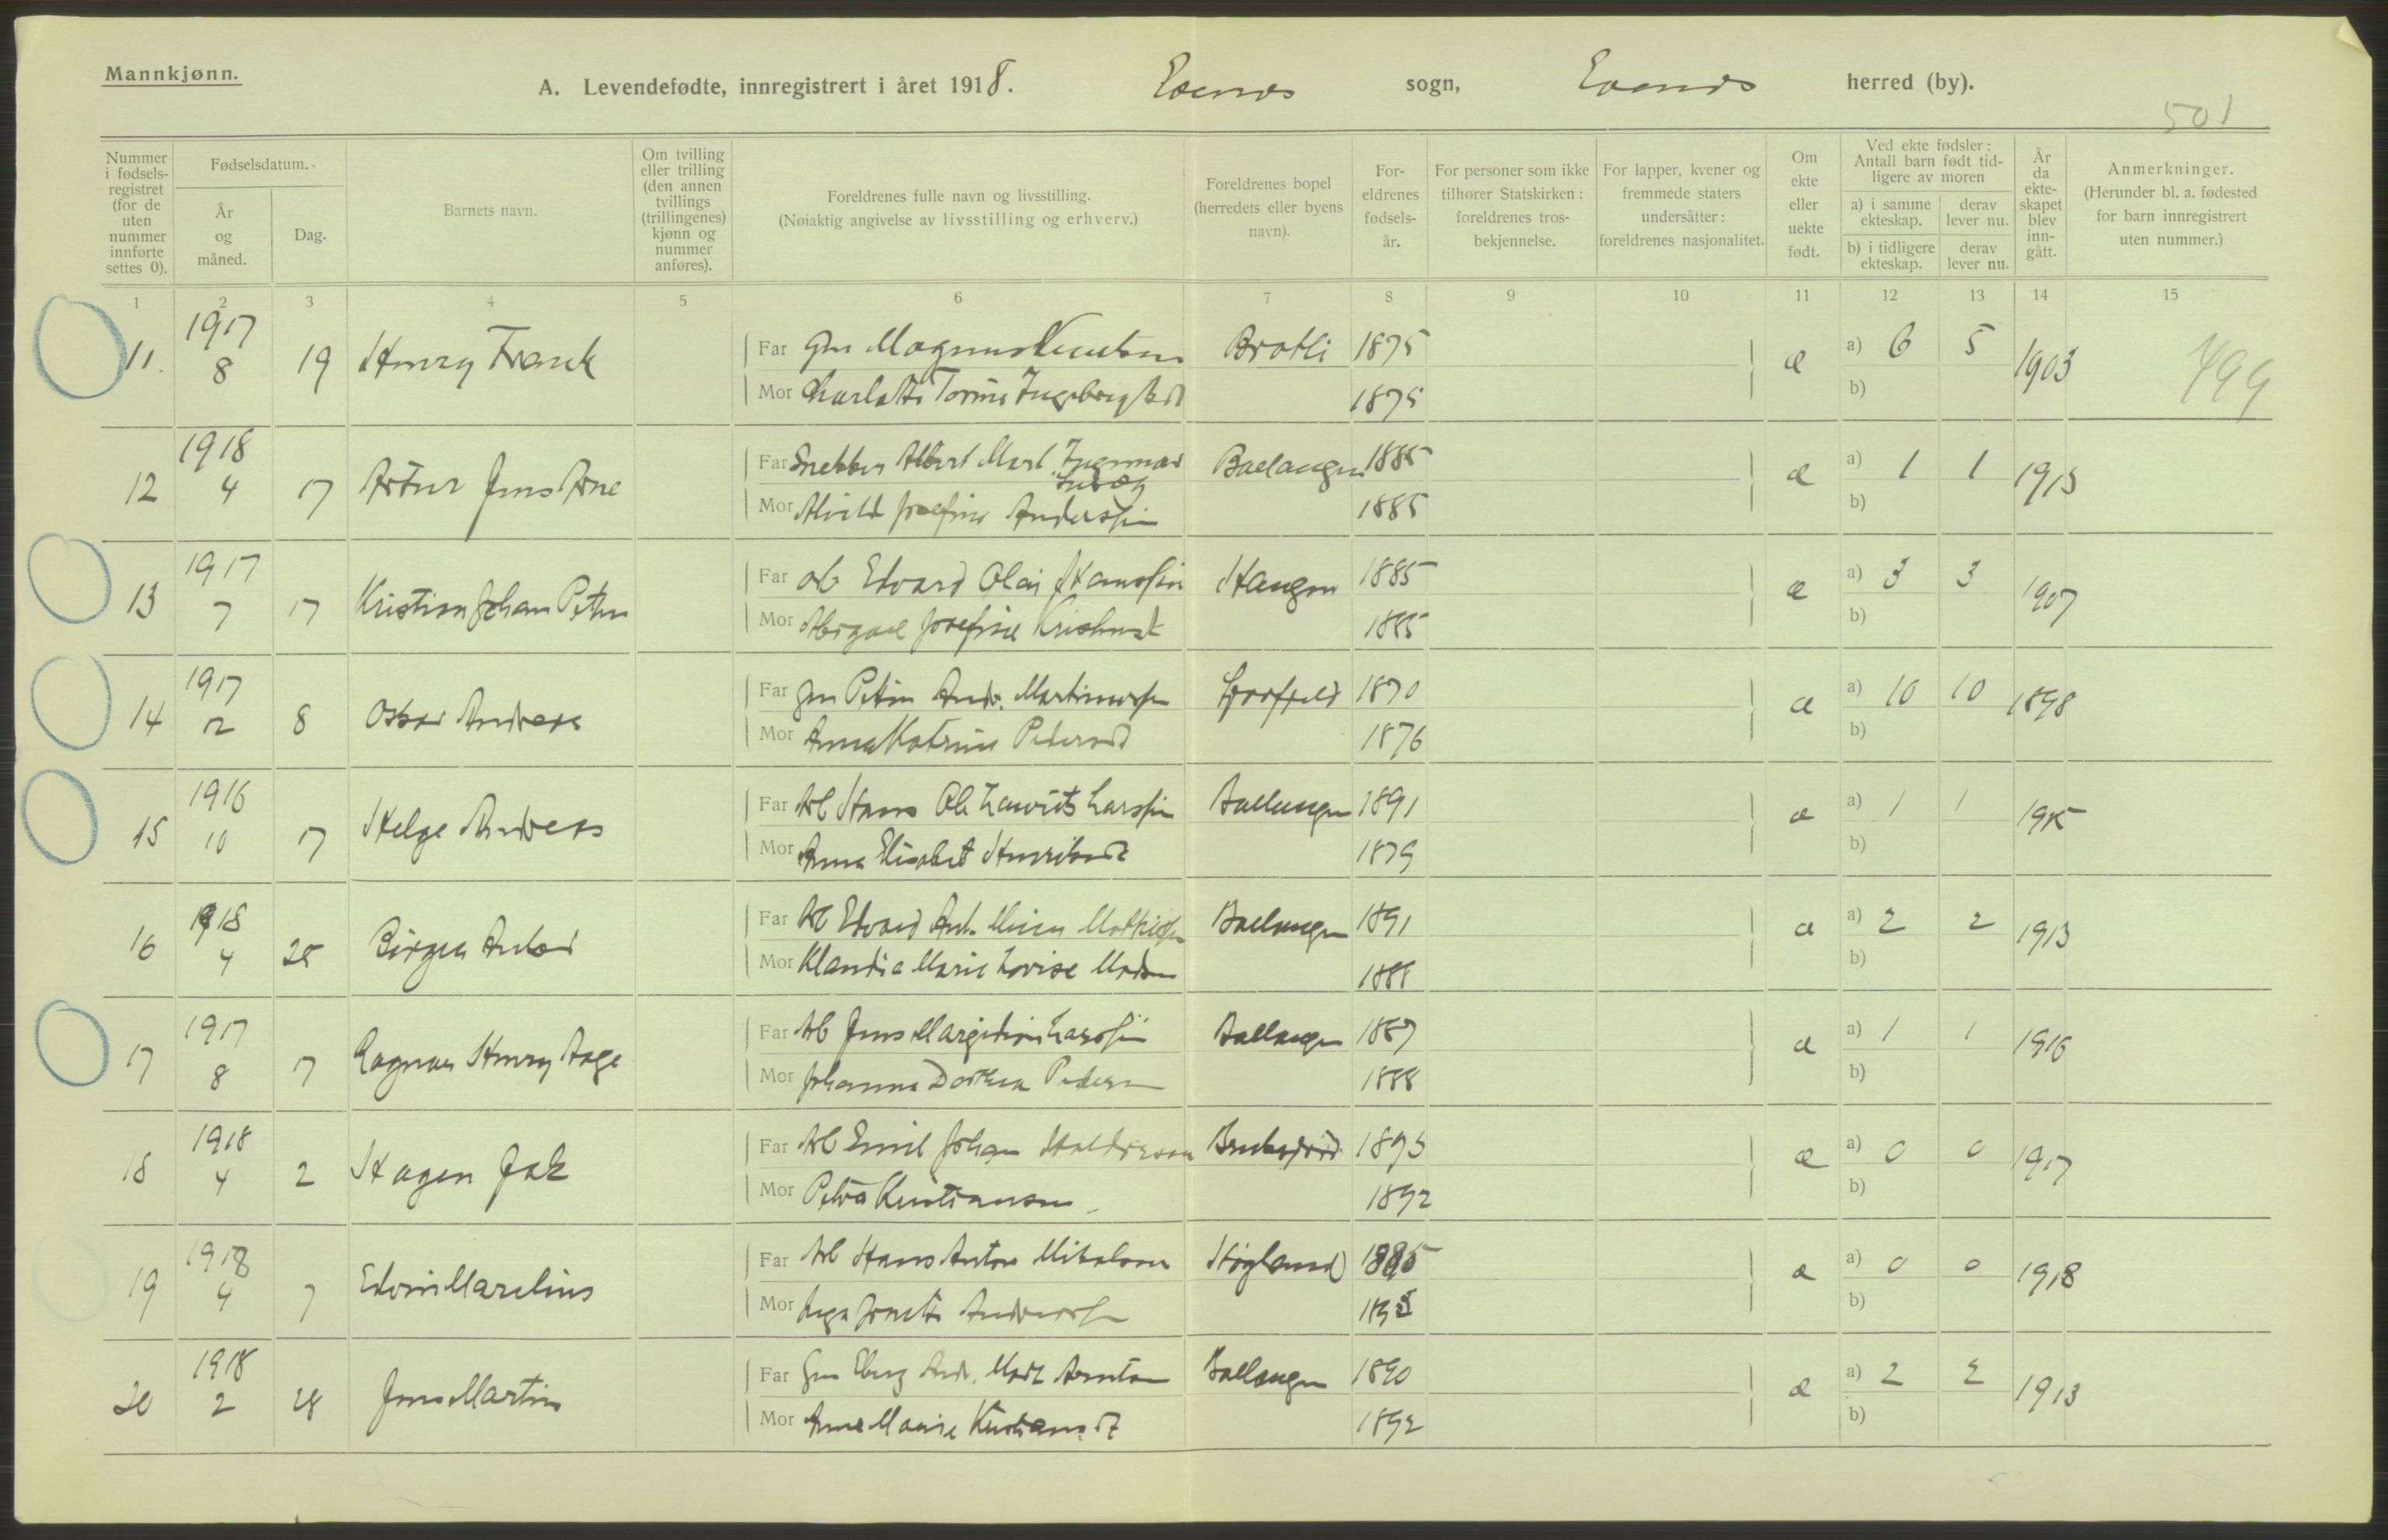 Mannkjønn.
A. Levendefødte, innregistrert i året 1918. Evenes sogn, Evenes herred (by).
501
Nummer i fødsels-registret (for de uten nummer innførte settes 0).
Fødselsdatum.
År og måned.
Dag.
Barnets navn.
Om tvilling eller trilling (den annen tvillings (trillingenes) kjønn og nummer anføres).
Foreldrenes fulle navn og livsstilling.
(Nøiaktig angivelse av livsstilling og erhverv.)
Foreldrenes bopel (herredets eller byens navn).
For-eldrenes fødsels-år.
For personer som ikke tilhører Statskirken: foreldrenes tros-bekjennelse.
For lapper, kvener og fremmede staters undersåtter: foreldrenes nasjonalitet.
Om ekte eller uekte født.
Ved ekte fødsler: Antall barn født tid-ligere av moren
a) i samme ekteskap.
derav lever nu.
b) i tidligere ekteskap.
derav lever nu.
År da ekte-skapet blev inn-gått.
Anmerkninger.
(Herunder bl. a. fødested for barn innregistrert uten nummer.)
1 2 3 4 5 6 7 8 9 10 11 12 13 14 15
11. 1917 8 19 Henry Frank
Far Magnus Knutsen 1875 æ a) 6 5 1903 499
Mor Charlotte 1875 b)
12 1918 4 17 Artur Jens Arne
Far Snekker Albert Mart. Ingemar Ballangen 1885 æ a) 1 1 1913
Mor Alvild Josefine Anderssen 1885 b)
13 1917 7 17 Kristian Johan Peter
Far Arb Edvard Olai Hanssen Haugen 1885 æ a) 3 3 1907
Mor Abigael Josefine 1885 b)
14 1917 12 8 Oskar Andreas
Far Gm Peder Andr. 1870 æ a) 10 10 1898
Mor Anna Katrine Pedersdt 1876 b)
15 1916 10 17 Helge Andreas
Far Arb Hans Ole Laurits Larssen Ballangen 1891 æ a) 1 1 1915
Mor Anna Elisabet Henriksdt 1879 b)
16 1918 4 25 Birger
Far Arb Edvard Ballangen 1891 æ a) 2 2 1913
Mor Klaudia Marie Lovise Madsen 1888 b)
17 1917 8 17 Ragnar Henry Aage
Far Arb Jens Larssen Ballangen 1887 æ a) 1 1 1916
Mor Johanna Dorthea Pedersen 1888 b)
18 1918 4 2 Hagen Jak
Far Arb Emil Johan 1893 æ a) 0 0 1917
Mor Petra Kristiansen 1892 b)
19 1918 4 7 Edvin Marelius
Far Arb Hans Anton Mikalsen Högland 1885 æ a) 0 0 1918
Mor Inga b)
20 1918 2 28 Jens Martin
Far Gm Andr. Ballangen 1890 æ a) 2 2 1913
Mor Anna Marie Kristiansdt 1892 b)